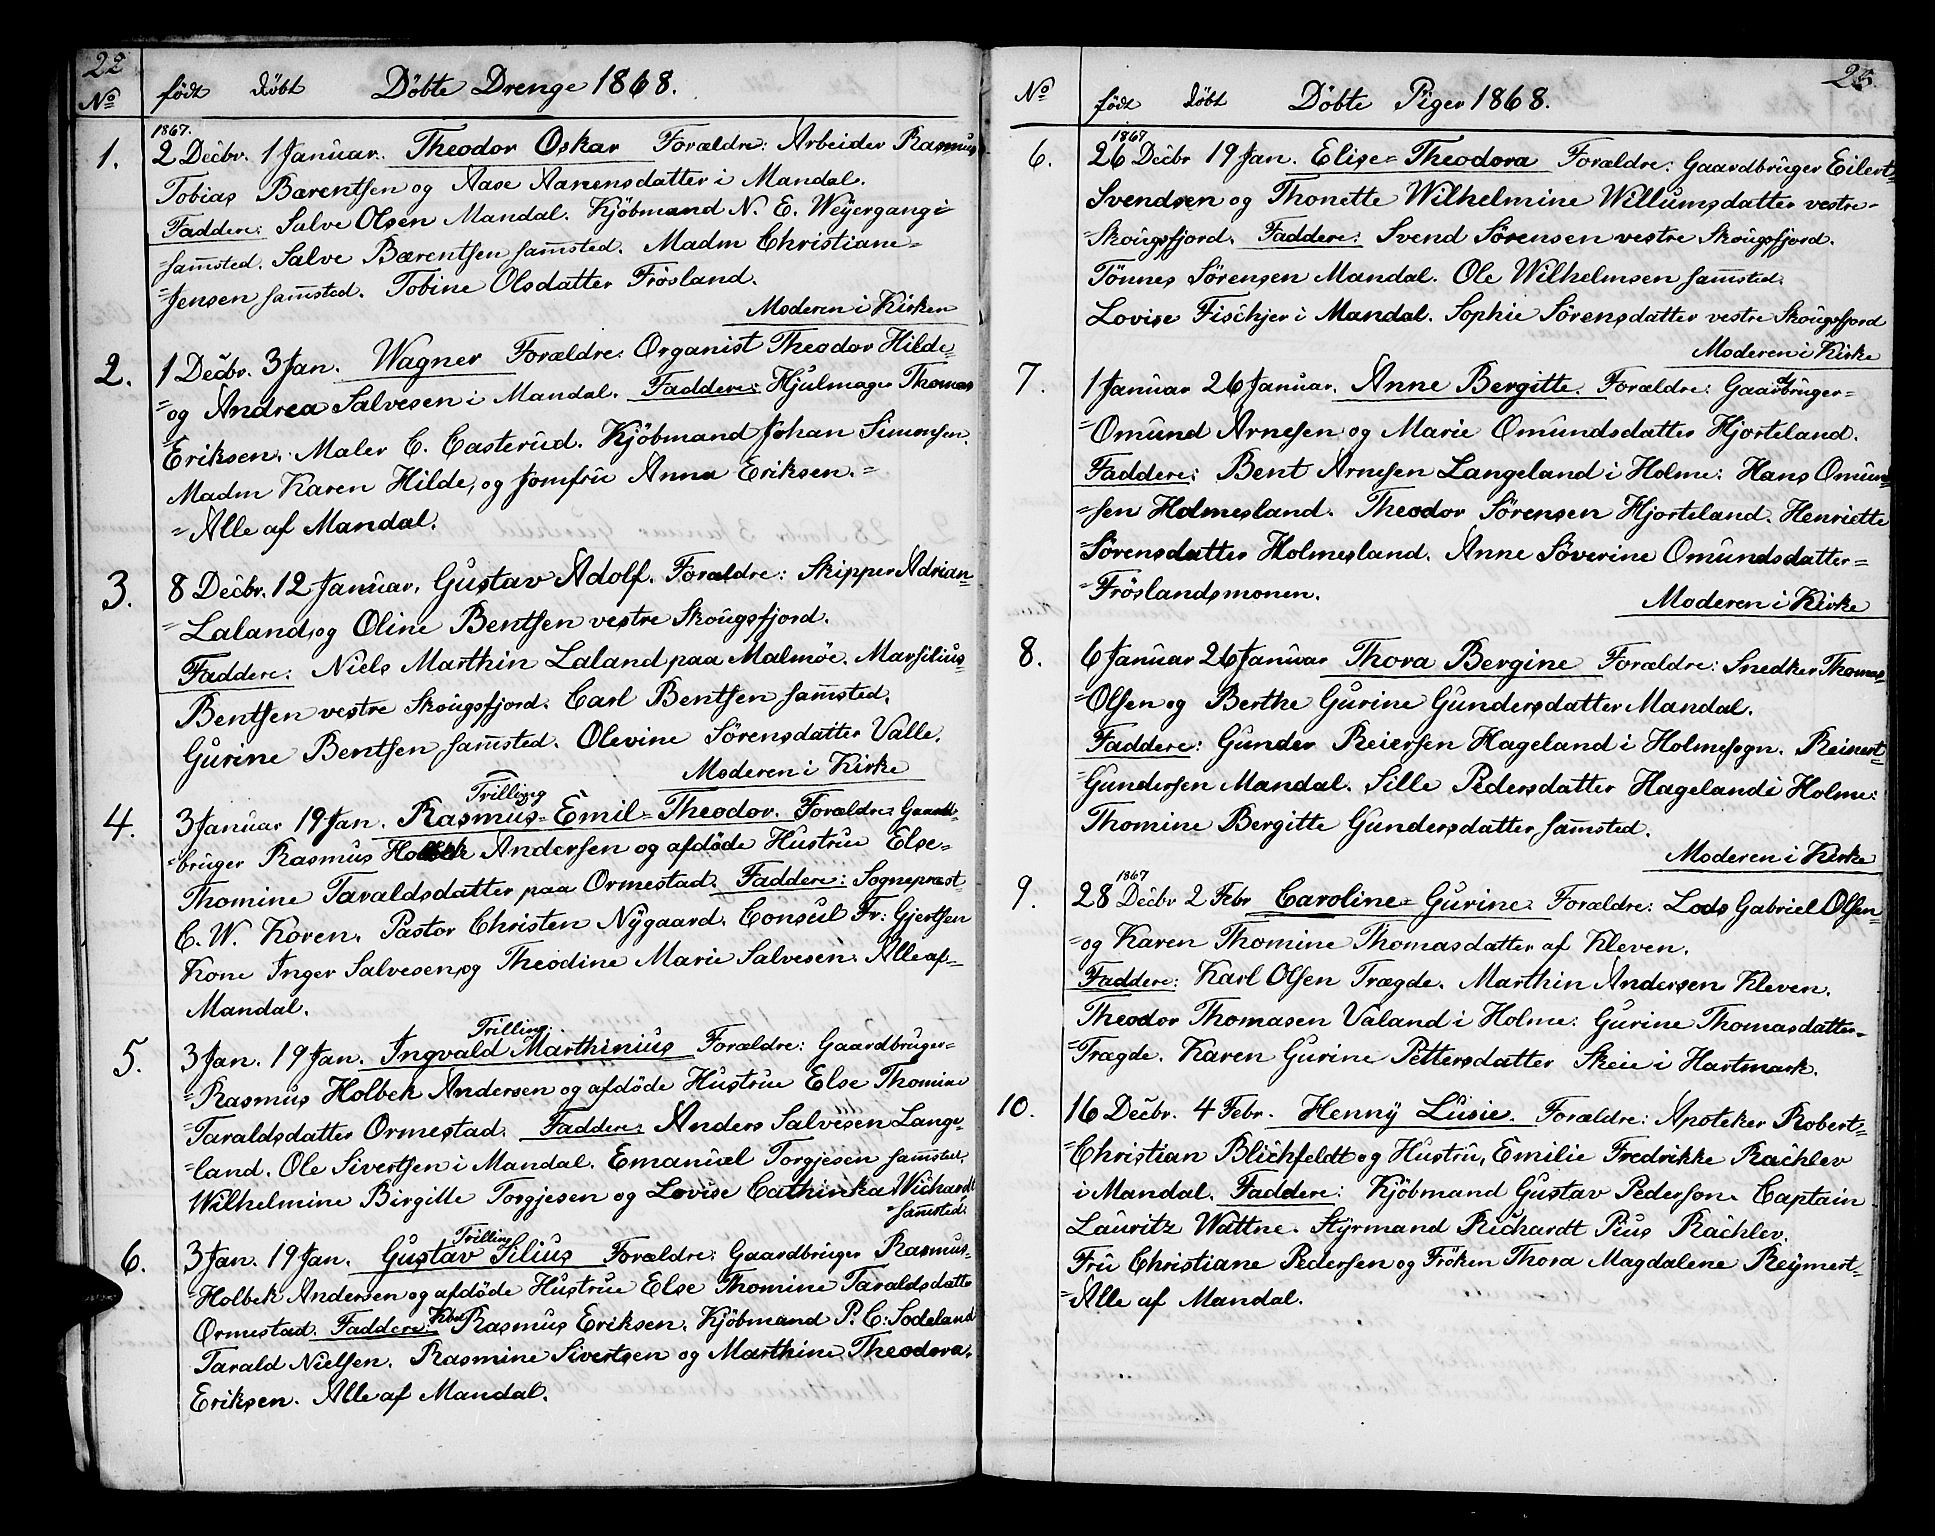 22
No født døbt Döbte Drenge 1868.
1867.
1. 2 Decbr. 1 Januar. Theodor Oskar Forældre: Arbeider Rasmus
Tobias Bærentsen og Aase Aanensdatter i Mandal.
Faddere: Salve Olsen Mandal. Kjöbmand N. E. Weyergang i
=samsted. Salve Bærentsen samsted. Madm Christiane=
=Jensen samsted. Tobine Olsdatter Frösland.
Moderen i Kirken
2. 1 Decbr. 3 Jan. Wagner Forældre: Organist Theodor Hilde=
=og Andrea Salvesen i Mandal. Faddere: Hjulmager Thomas
Eriksen. Maler C. Casterud. Kjöbmand Johan Simonsen.
Madm Karen Hilde, og Jomfru Anna Eriksen.=
=Alle af Mandal.
3. 8 Decbr. 12 Januar. Gustav Adolf. Forældre: Skipper Adrian=
=Laland, og Oline Bentsen vestre Skougsfjord.
Faddere: Niels Marthin Laland paa Malmöe. Marsilius
Bentsen vestre Skougsfjord. Carl Bentsen samsted.
Gurine Bentsen samsted. Olevine Sörensdatter Valle.
Moderen i Kirke
Trilling
4. 3 Januar 19 Jan. Rasmus=Emil=Theodor. Forældre: Gaard=
=bruger Rasmus Holbek Andersen og afdöde Hustrue Else=
Thomine Taraldsdatter paa Ormestad. Faddere: Sognepræst=
C. W. Koren. Pastor Christen Nygaard. Consul Fr: Gjertsen
Kone Inger Salvesen, og Theodine Marie Salvesen. Alle af=
Mandal.
Trilling.
5. 3 Jan. 19 Jan. Ingvald Marthinius Forældre: Gaardbruger=
=Rasmus Holbek Andersen og afdöde Hustrue Else Thomine
Taraldsdatter Ormestad. Faddere: Anders Salvesen Lange=
=land. Ole Sivertsen i Mandal. Emanuel Torgjesen samsted.
Wilhelmine Birgitte Torgjesen og Lovise Cathinka Wichardt
=samsted.
Trilling
6. 3 Jan. 19 Jan. Gustav Silius Forældre: Gaardbruger Rasmus=
=Holbek Andersen og afdöde Hustrue Else Thomine Taraldsdatter
Ormestad. Faddere: Kbm Rasmus Eriksen. Kjöbmand P. C: Sodeland
Tarald Nielsen. Rasmine Sivertsen og Marthine Theodora.
Eriksen. Alle af Mandal.
23.
No født døbt Döbte Piger 1868.
1867
6. 26 Decbr 19 Jan. Elise=Theodora Forældre: Gaardbruger Eilert=
Svendsen og Thonette Wilhelmine Willumsdatter vestre=
=Skougsfjord. Faddere: Svend Sörensen vestre Skougsfjord.
Tönnes Sörensen Mandal. Ole Wilhelmsen samsted.
Lovise Fischjer i Mandal. Sophie Sörensdatter vestre Skougsfjord
Moderen i Kirke
7. 1 Januar 26 Januar. Anne Bergitte. Forældre: Gaardbruger=
=Omund Arnesen og Marie Omundsdatter Hjorteland.
Faddere: Bent Arnesen Langeland i Holme: Hans Omund=
=sen Holmesland. Theodor Sörensen Hjorteland. Henriette
=Sörensdatter Holmesland. Anne Söverine Omundsdatter=
=Fröslandsmonen.
Moderen i Kirke
8. 6 Januar 26 Januar Thora Bergine Forældre: Snedker Thomas=
=Olsen og Berthe Gurine Gundersdatter Mandal.
Faddere: Gunder Reiersen Hageland i Holmesogn. Reinert=
=Gundersen Mandal. Sille Pedersdatter Hageland i Holme:
Thomine Bergitte Gundersdatter samsted.
Moderen i Kirke
1867
9. 28 Decbr 2 Febr Caroline=Gurine. Forældre: Lods Gabriel Olsen=
=og Karen Thomine Thomasdatter af Kleven.
Faddere: Karl Olsen Trægde. Marthin Andersen Kleven.
Theodor Thomasen Valand i Holme: Gurine Thomasdatter=
=Trægde. Karen Gurine Pettersdatter Skeie i Hartmark.
10. 16 Decbr. 4 Febr. Henny Lusie. Forældre: Apoteker Robert=
=Christian Blichfeldt og Hustru, Emilie Fredrikke Rachlev
i Mandal. Faddere: Kjöbmand Gustav Pedersen. Captain
Lauritz Wattne. Styrmand Richardt Pius Rachlev.
Fru Christiane Pedersen og Fröken Thora Magdalene Reymert=
=Alle af Mandal.